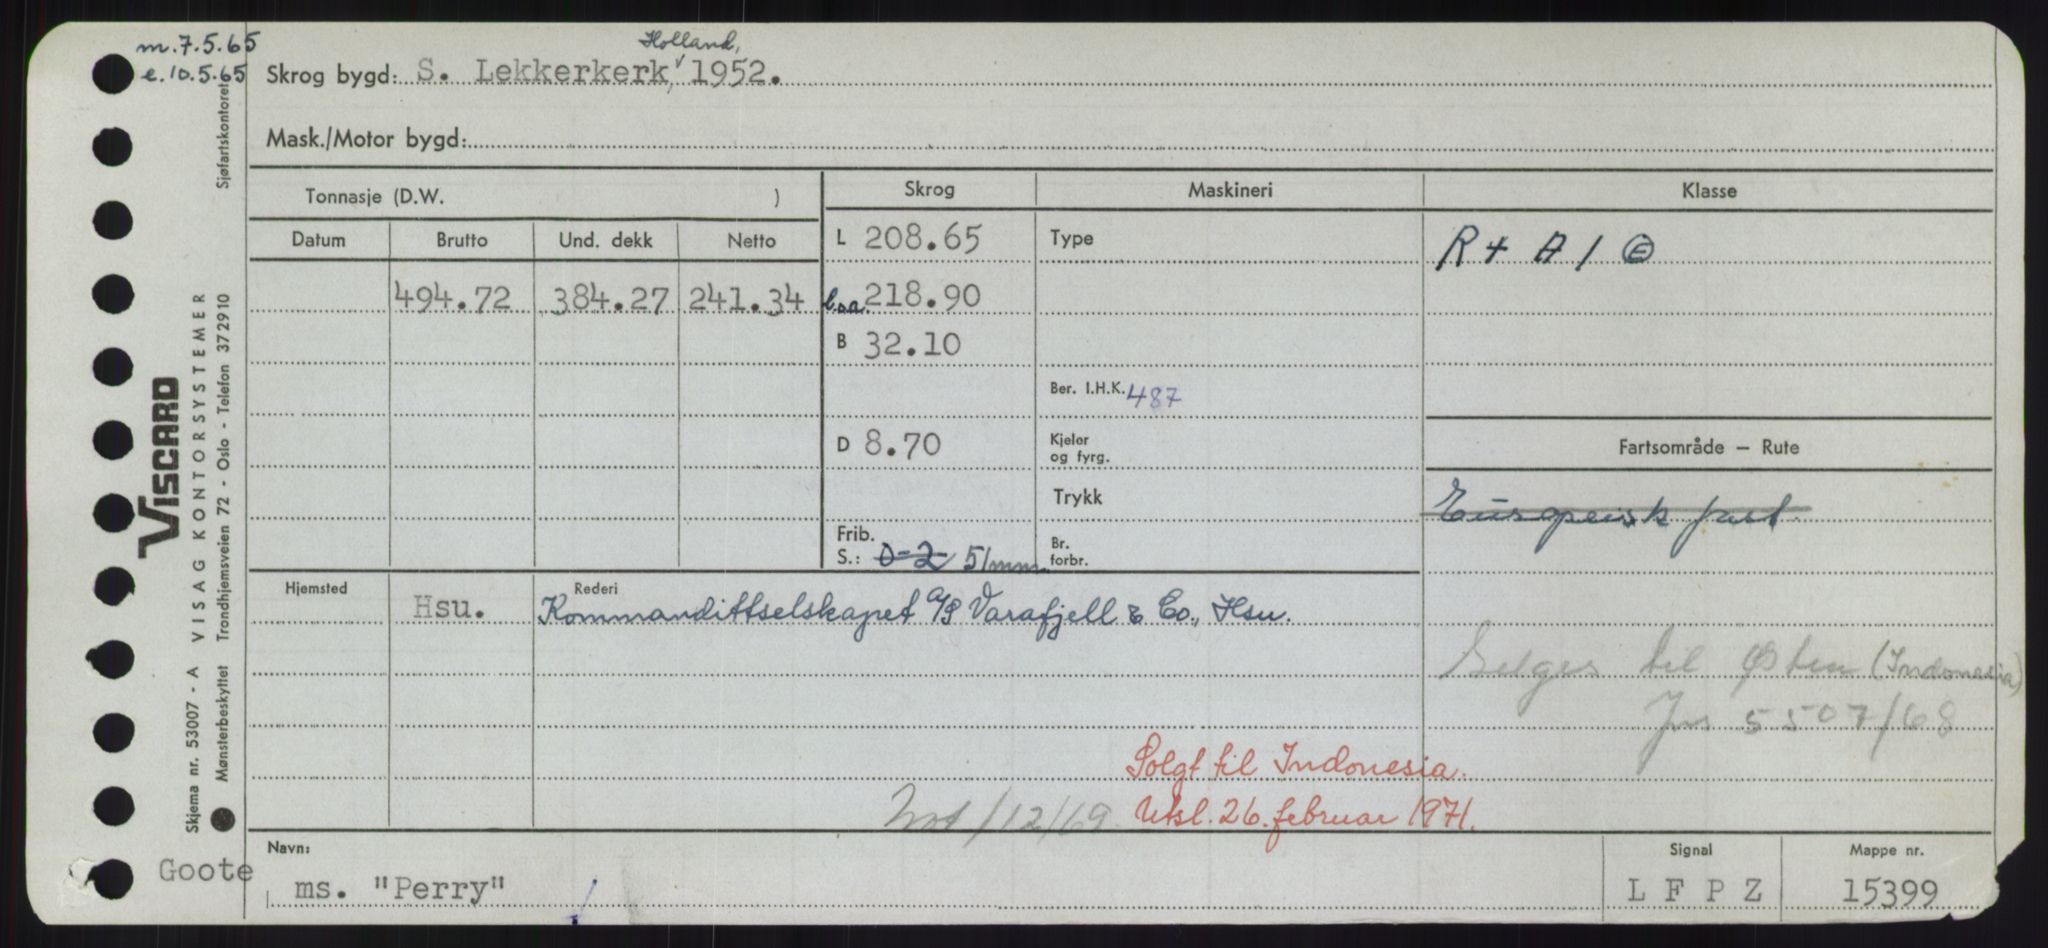 m.7.5.65
e.10.5.65
Holland,
Skrog bygd: S. Lekkerkerk, 1952.
Mask./Motor bygd:
Tonnasje (D.W. )
Skrog
Maskineri
Klasse
Datum
Brutto
Und. dekk
Netto
L 208.65
Type
R + A 1 Ⓔ
494.72
384.27
241.34
l.o.a. 218.90
B 32.10
Ber. I.H.K. 487
D 8.70
Kjeler
og fyrg.
Fartsområde – Rute
Trykk
Europeisk fart.
Frib.
S.: 0-2 51 mm.
Br.
forbr.
Hjemsted
Hsu.
Rederi
Kommandittselskapet A/S Varafjell & Co., Hsu.
Selges til Østen (Indonesia)
Jnr 5507/68
Solgt til Indonesia.
Not 1/12/69.
Utsl. 26. februar 1971.
Navn:
Goote
ms. "Perry"
Signal
L F P Z
Mappe nr.
15399
VISCARD
VISAG KONTORSYSTEMER
Skjema nr. 53007 - A
Mønsterbeskyttet
Trondhjemsveien 72 - Oslo - Telefon 372910
Sjøfartskontoret